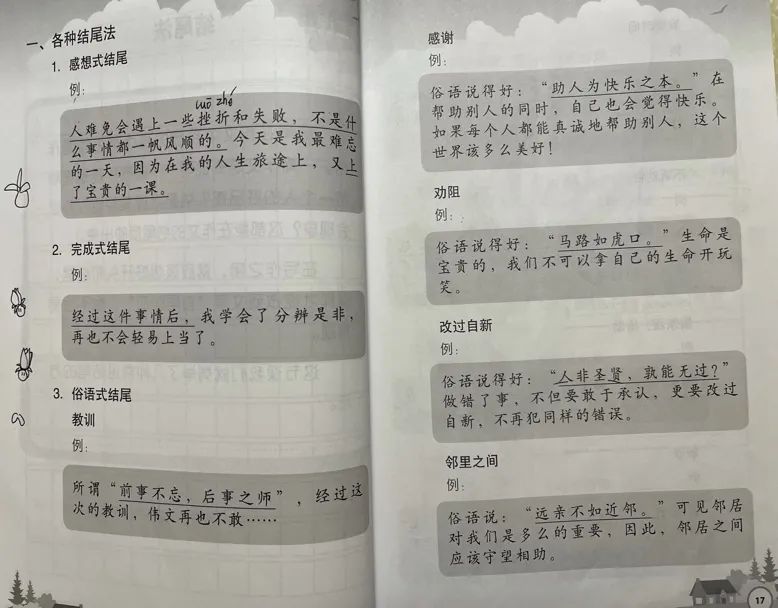 一、各种结尾法
1. 感想式结尾
例:
cuō zhé
人难免会遇上一些挫折和失败，不是什
么事情都一帆风顺的。今天是我最难忘
的一天，因为在我的人生旅途上，又上
了宝贵的一课。
2. 完成式结尾
例:
经过这件事情后，我学会了分辨是非，
再也不会轻易上当了。
3. 俗语式结尾
教训
例:
所谓“前事不忘，后事之师”，经过这
次的教训，伟文再也不敢……
感谢
例:
俗语说得好：“助人为快乐之本。”在
帮助别人的同时，自己也会觉得快乐。
如果每个人都能真诚地帮助别人，这个
世界该多么美好！
劝阻
例:
俗语说得好：“马路如虎口。”生命是
宝贵的，我们不可以拿自己的生命开玩
笑。
改过自新
例:
俗语说得好：“人非圣贤，孰能无过？”
做错了事，不但要敢于承认，更要改过
自新，不再犯同样的错误。
邻里之间
例:
俗语说：“远亲不如近邻。”可见邻居
对我们是多么的重要，因此，邻居之间
应该守望相助。
17